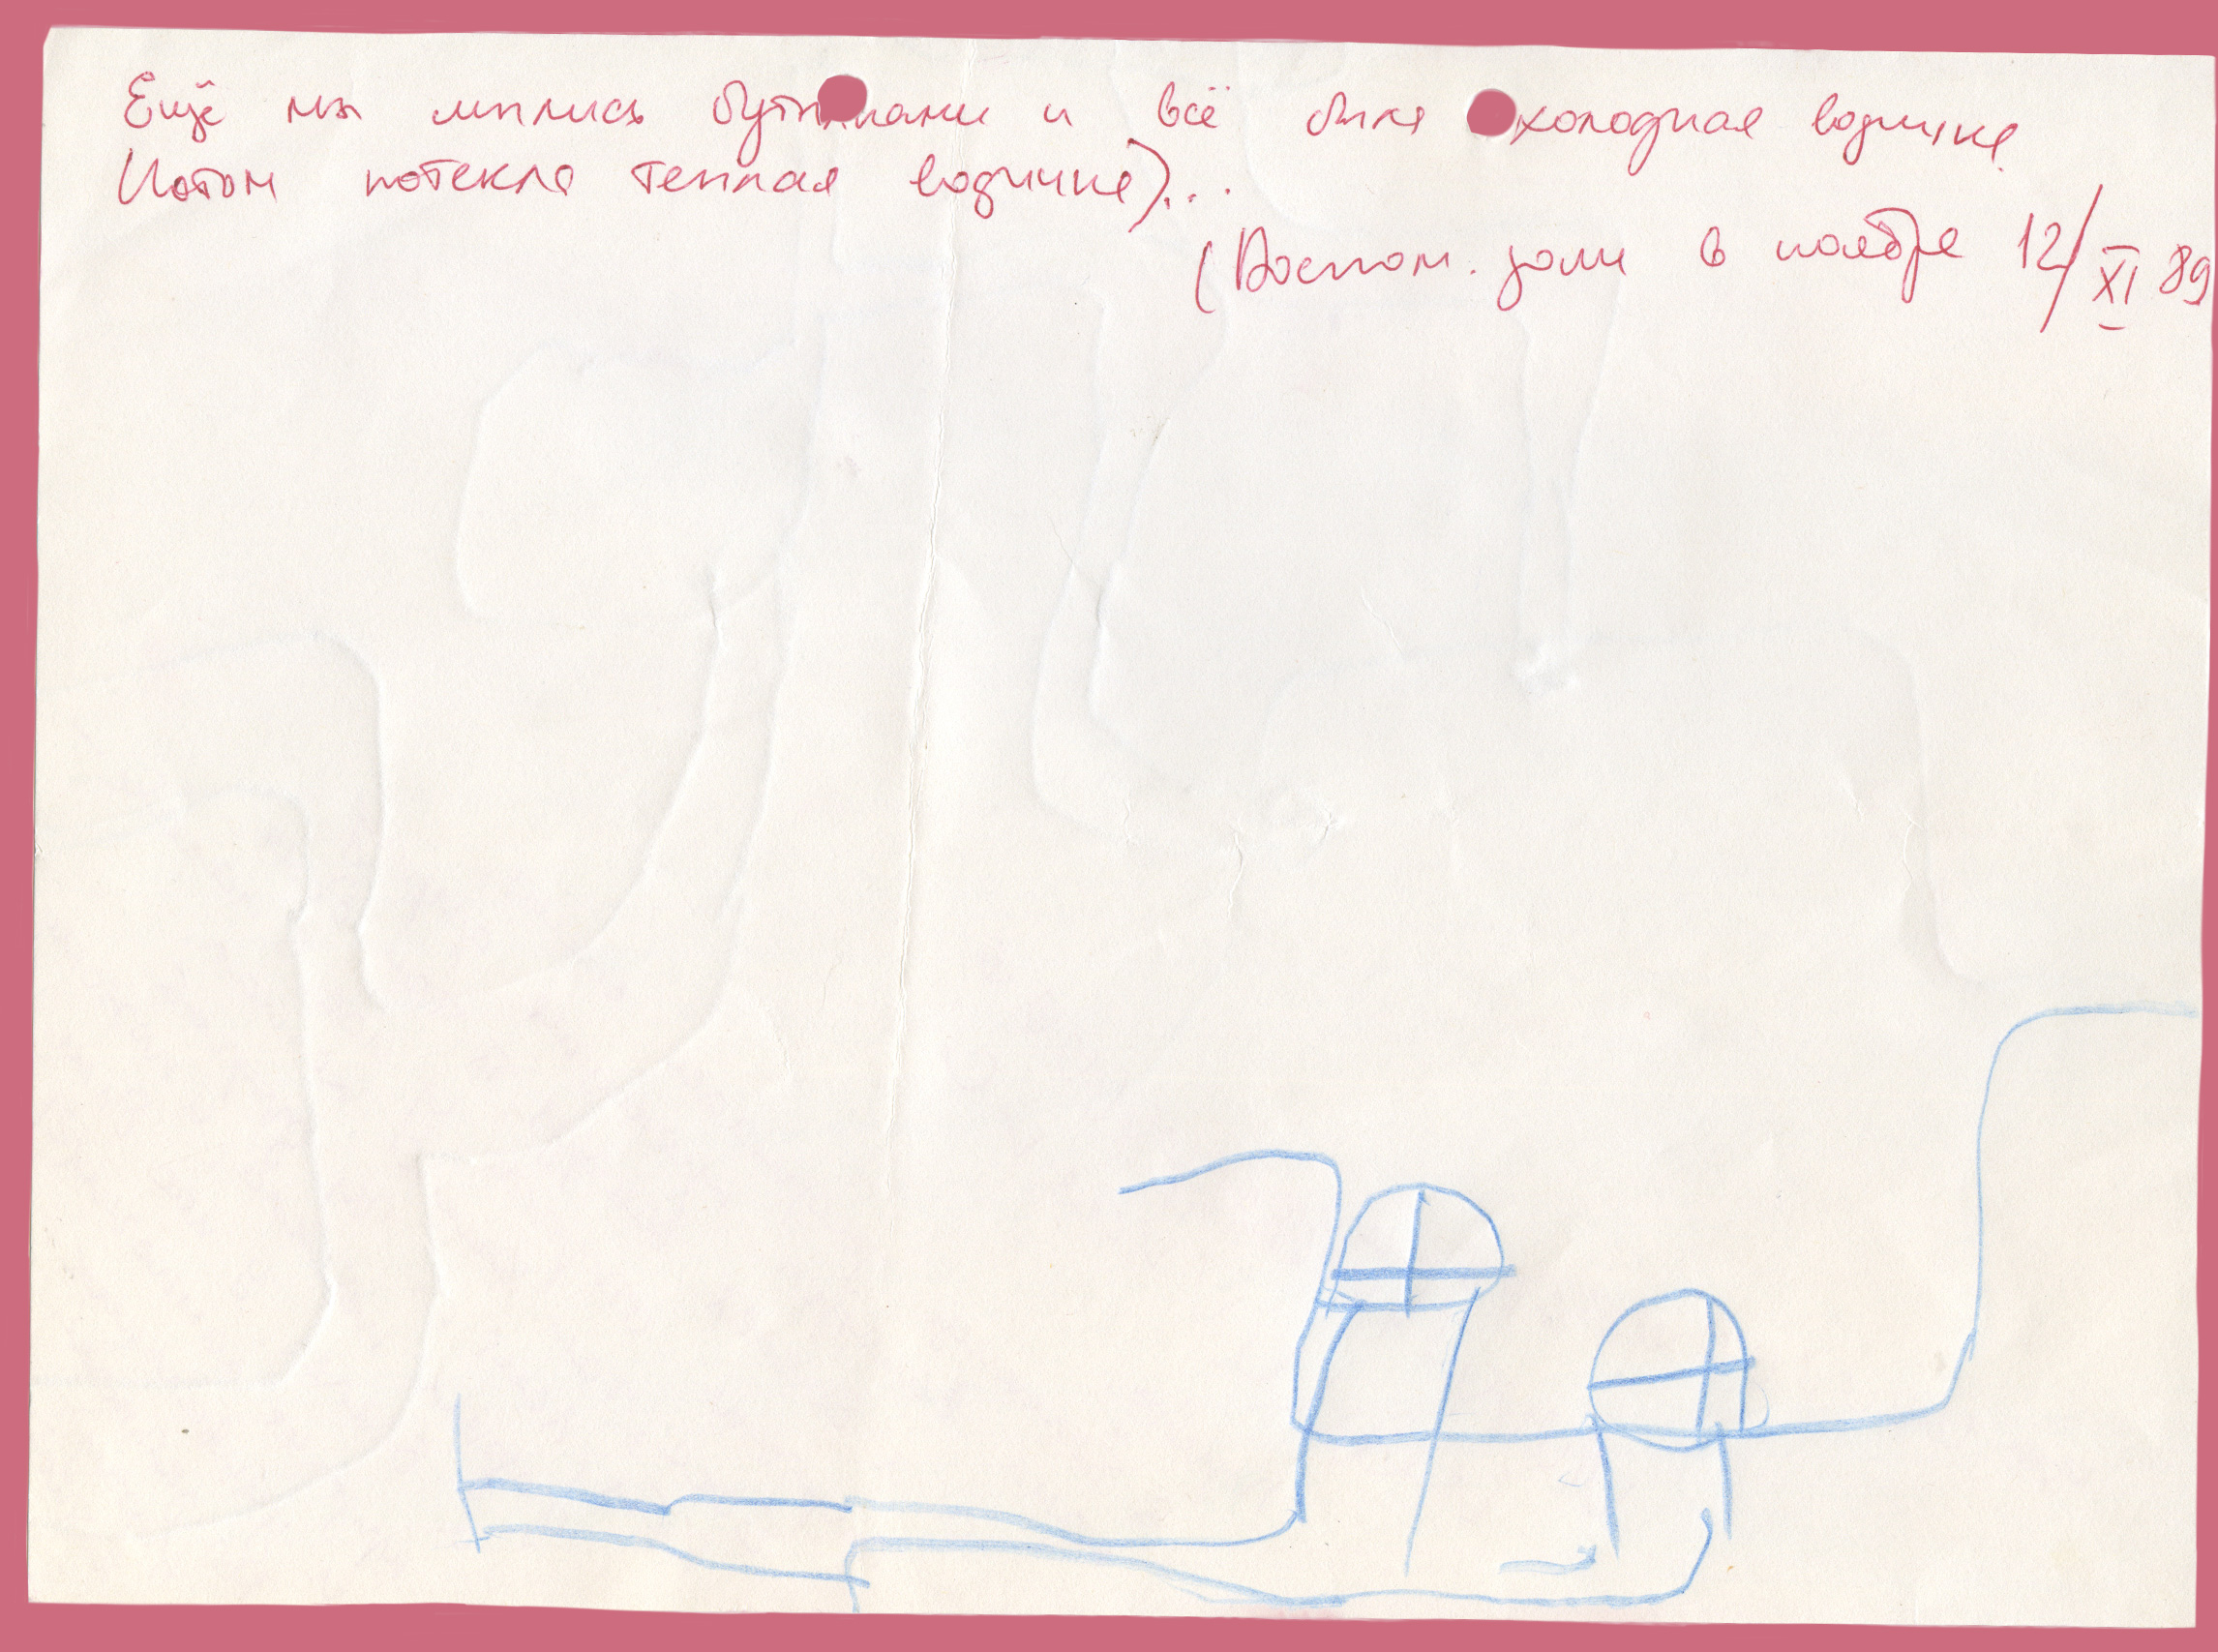 Ещё мы мылись бутылками и всё была холодная водичка.
Потом потекла теплая водичка)...
(Воспом. дома в ноябре 12/XI 89